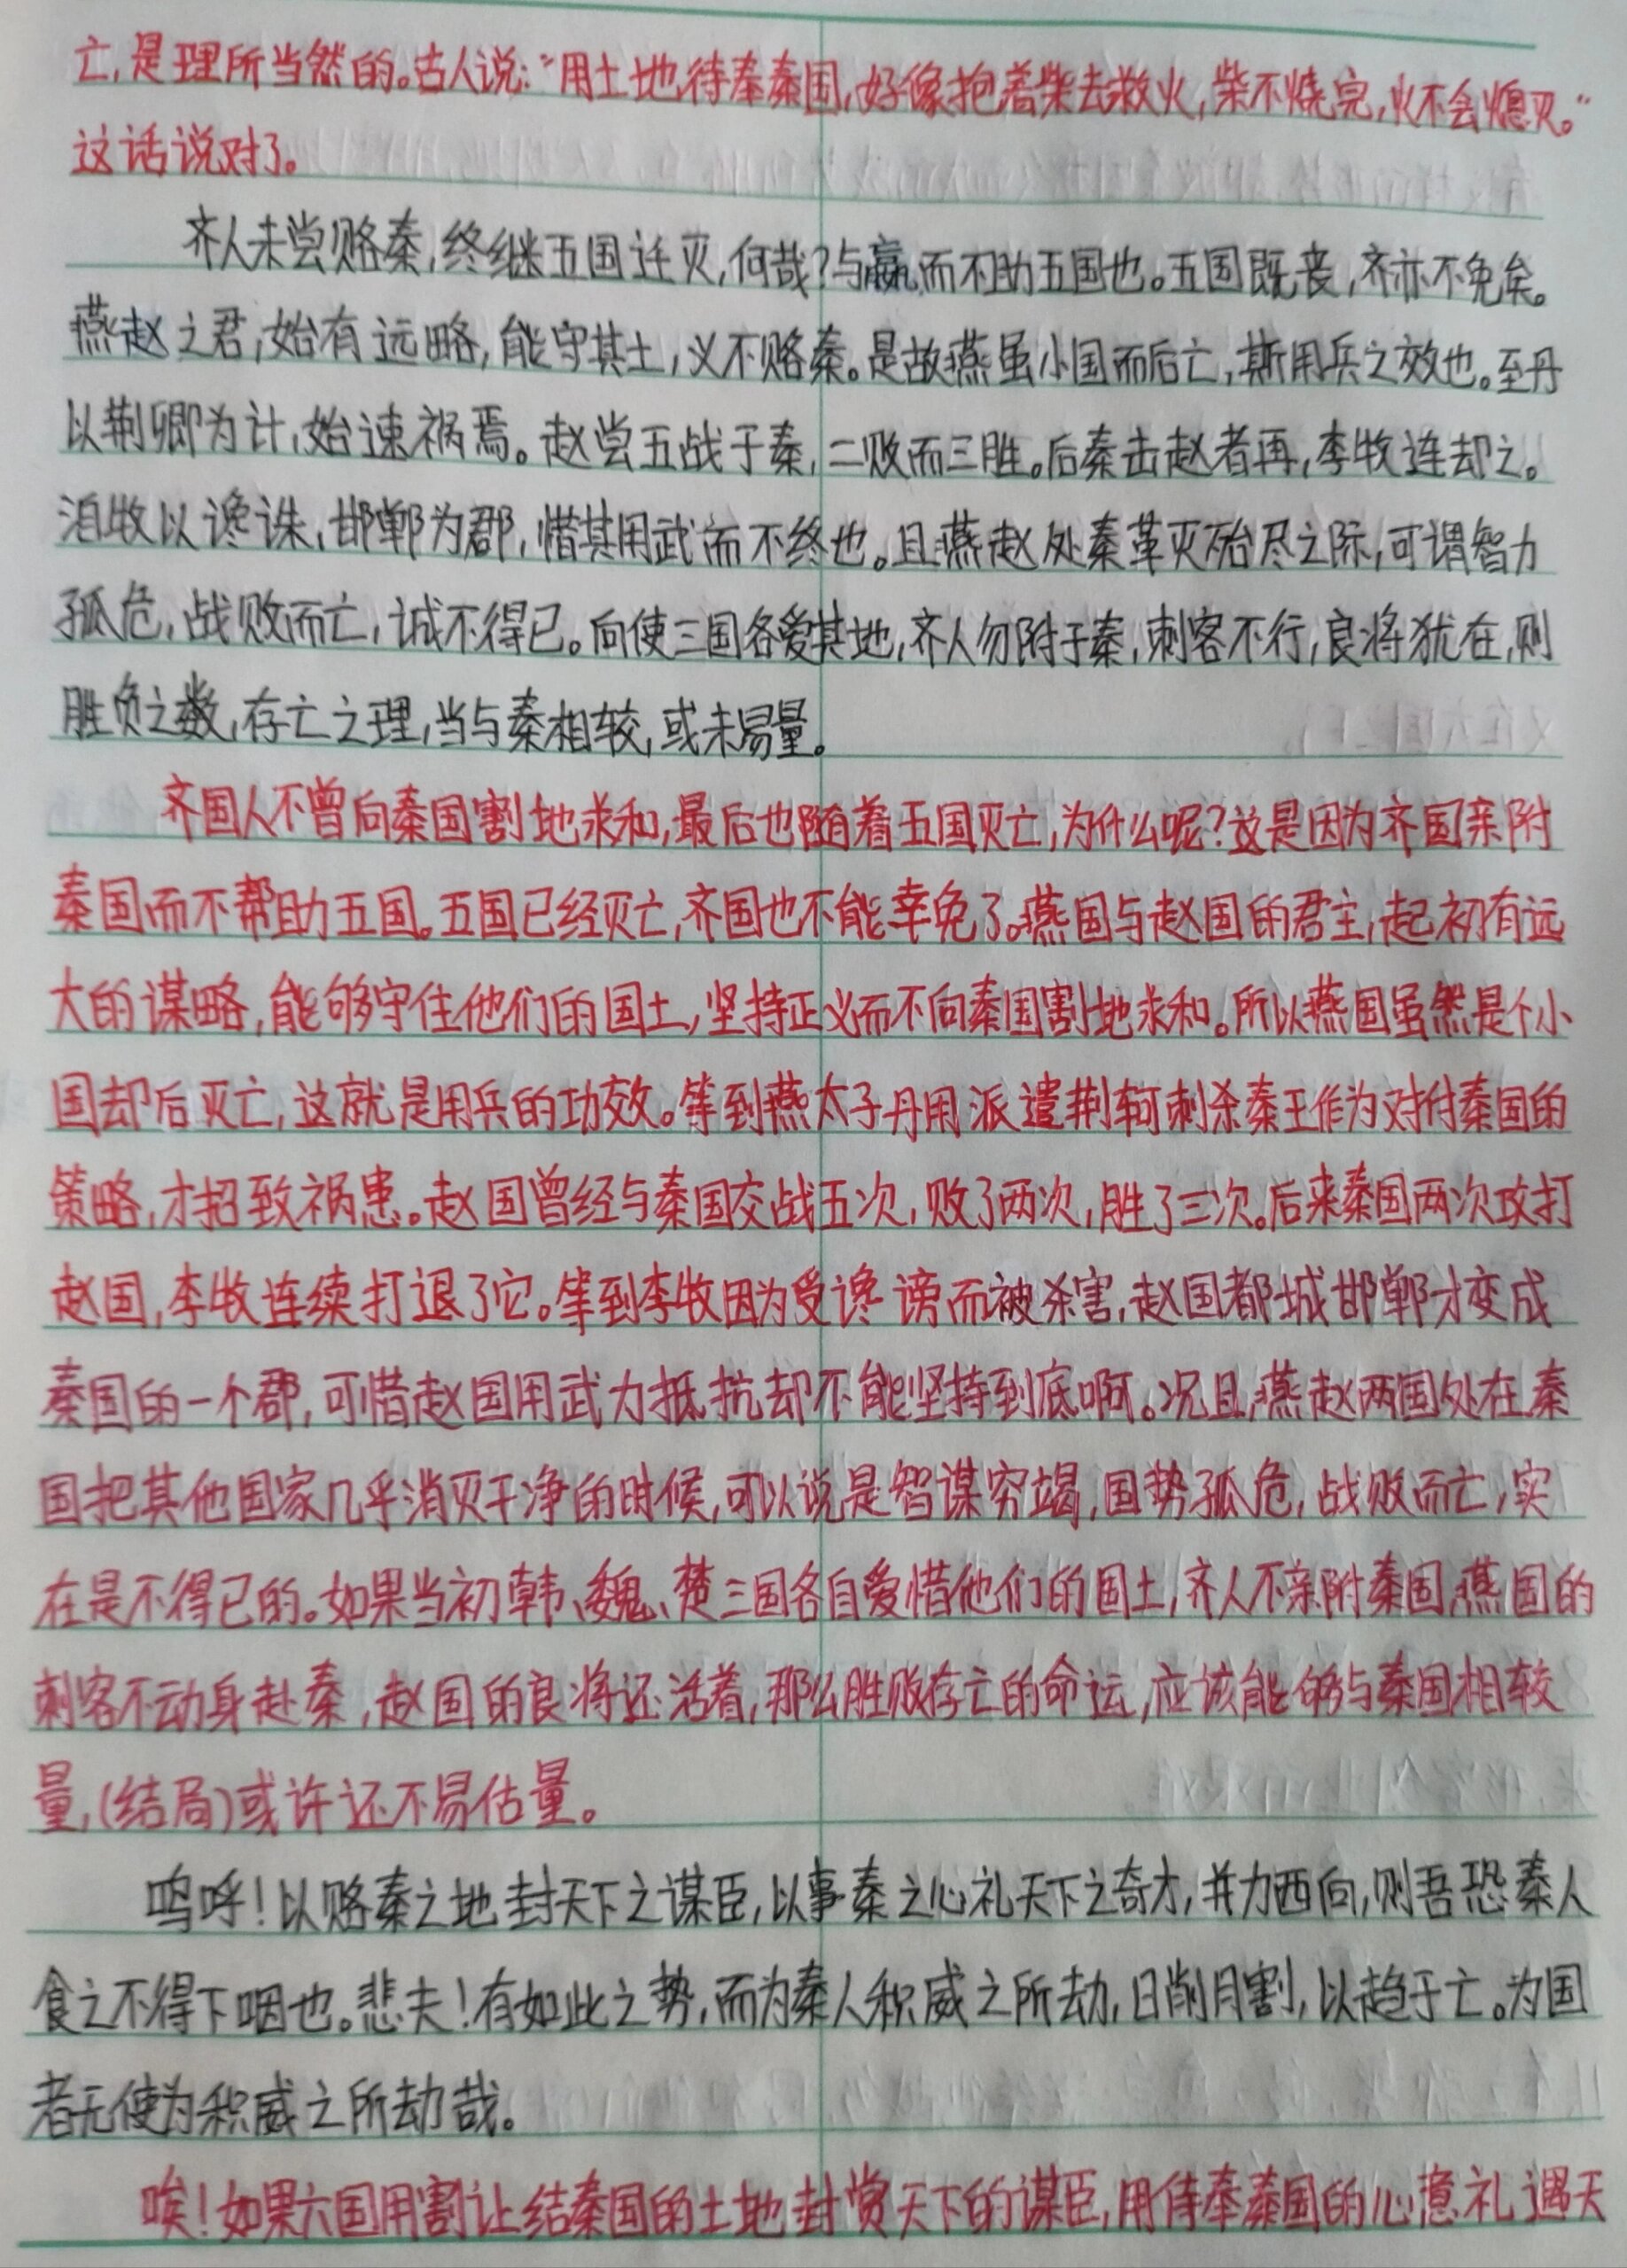 亡，是理所当然的。古人说：“用土地待奉秦国，好像抱着柴去救火，柴不烧完，火不会熄灭。”
这话说对了。
齐人未尝赂秦，终继五国迁灭，何哉？与嬴而不助五国也。五国既丧，齐亦不免矣。
燕赵之君，始有远略，能守其土，义不赂秦。是故燕虽小国而后亡，斯用兵之效也。至丹
以荆卿为计，始速祸焉。赵尝五战于秦，二败而三胜。后秦击赵者再，李牧连却之。
洎牧以谗诛，邯郸为郡，惜其用武而不终也。且燕赵处秦革灭殆尽之际，可谓智力
孤危，战败而亡，诚不得已。向使三国各爱其地，齐人勿附于秦，刺客不行，良将犹在，则
胜负之数，存亡之理，当与秦相较，或未易量。
齐国人不曾向秦国割地求和，最后也随着五国灭亡，为什么呢？这是因为齐国亲附
秦国而不帮助五国。五国已经灭亡，齐国也不能幸免了。燕国与赵国的君主，起初有远
大的谋略，能够守住他们的国土，坚持正义而不向秦国割地求和。所以燕国虽然是个小
国却后灭亡，这就是用兵的功效。等到燕太子丹用派遣荆轲刺杀秦王作为对付秦国的
策略，才招致祸患。赵国曾经与秦国交战五次，败了两次，胜了三次。后来秦国两次攻打
赵国，李牧连续打退了它。等到李牧因为受谗谤而被杀害，赵国都城邯郸才变成
秦国的一个郡，可惜赵国用武力抵抗却不能坚持到底啊。况且，燕赵两国处在秦
国把其他国家几乎消灭干净的时候，可以说是智谋穷竭，国势孤危，战败而亡，实
在是不得已的。如果当初韩、魏、楚三国各自爱惜他们的国土，齐人不亲附秦国，燕国的
刺客不动身赴秦，赵国的良将还活着，那么胜败存亡的命运，应该能够与秦国相较
量，（结局）或许还不易估量。
呜呼！以赂秦之地封天下之谋臣，以事秦之心礼天下之奇才，并力西向，则吾恐秦人
食之不得下咽也。悲夫！有如此之势，而为秦人积威之所劫，日削月割，以趋于亡。为国
者无使为积威之所劫哉。
唉！如果六国用割让结秦国的土地封赏天下的谋臣，用侍奉秦国的心意礼遇天